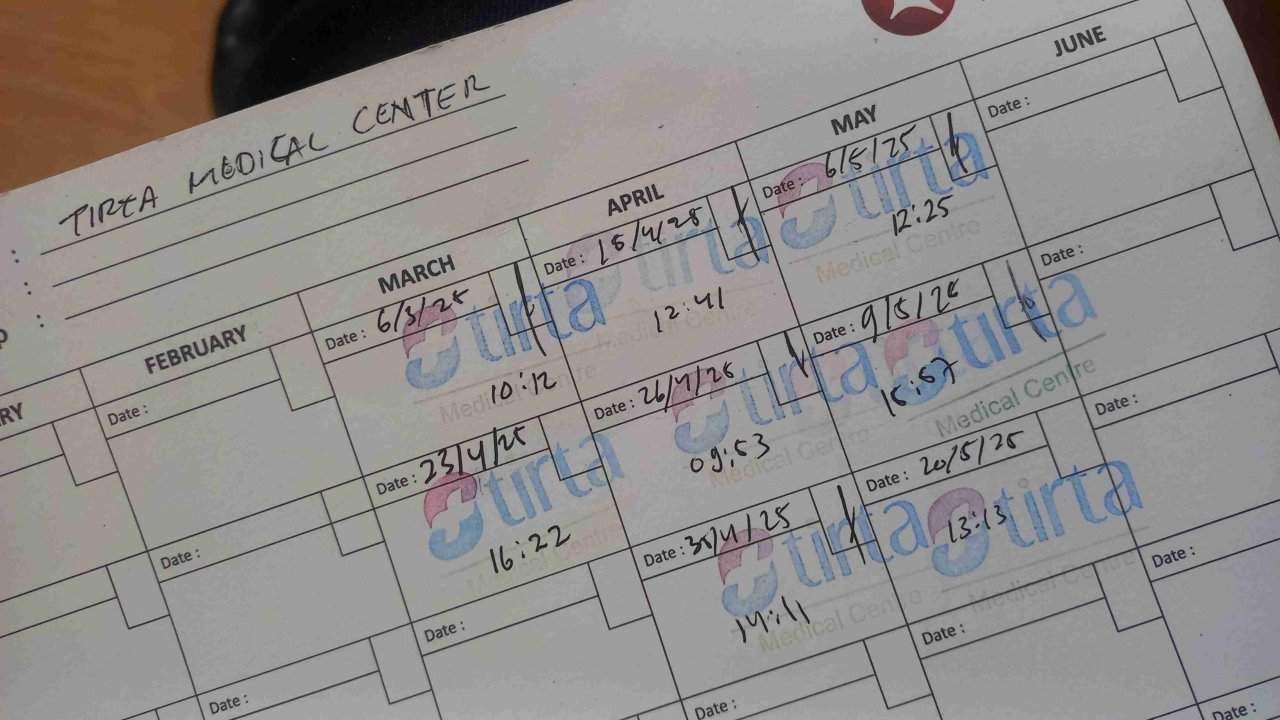 : TIRTA MEDICAL CENTER
:
:
JUNE
Date :
MAY
Date : 6/5/25
tirta
Medical Centre
12:25
APRIL
Date : 15/4/25
tirta
Medical Centre
12:41
MARCH
Date : 6/3/25
tirta
Medical Centre
10:12
FEBRUARY
Date :
RY
Date :
Date : 9/5/25
tirta
Medical Centre
15:57
Date : 26/4/25
tirta
Medical Centre
09:53
Date : 23/4/25
tirta
Medical Centre
16:22
Date :
Date :
Date : 20/5/25
tirta
Medical Centre
13:13
Date : 30/4/25
tirta
Medical Centre
14:11
Date :
Date :
Date :
Date :
Date :
Date :